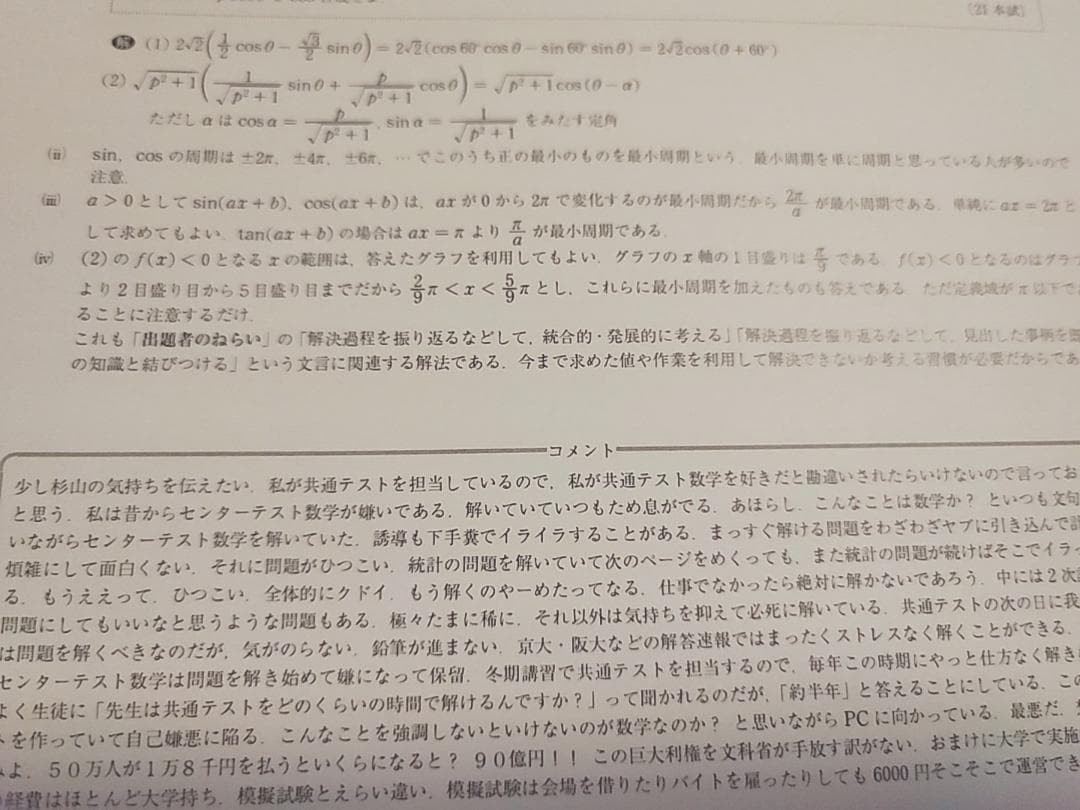 〔21 本試〕
解 (1) 2√2(1/2 cosθ − √3/2 sinθ) = 2√2(cos60°cosθ − sin60°sinθ) = 2√2cos(θ+60°)
(2) √(p²+1)(1/√(p²+1) sinθ + p/√(p²+1) cosθ) = √(p²+1)cos(θ−α)
ただし α は cosα = p/√(p²+1), sinα = 1/√(p²+1) をみたす定角
(ii) sin, cos の周期は ±2π, ±4π, ±6π, … でこのうち正の最小のものを最小周期という. 最小周期を単に周期と思っている人が多いので
注意.
(iii) a>0 として sin(ax+b), cos(ax+b) は, ax が 0 から 2π で変化するのが最小周期だから 2π/a が最小周期である. 単純に ax=2π と
して求めてもよい. tan(ax+b) の場合は ax=π より π/a が最小周期である.
(iv) (2)の f(x)<0 となる x の範囲は, 答えたグラフを利用してもよい. グラフの x 軸の1目盛りは π/9 である. f(x)<0 となるのはグラフ
より2目盛り目から5目盛り目までだから 2/9π<x<5/9π とし, これらに最小周期を加えたものも答えである. ただ定義域が π 以下で
ることに注意するだけ.
これも「出題者のねらい」の「解決過程を振り返るなどして, 統合的・発展的に考える」「解決過程を振り返るなどして, 見出した事柄を既
の知識と結びつける」という文言に関連する解法である. 今まで求めた値や作業を利用して解決できないか考える習慣が必要だからであ
コメント
少し杉山の気持ちを伝えたい. 私が共通テストを担当しているので, 私が共通テスト数学を好きだと勘違いされたらいけないので言ってお
と思う. 私は昔からセンターテスト数学が嫌いである. 解いていていつもため息がでる. あほらし. こんなことは数学か? といつも文句
いながらセンターテスト数学を解いていた. 誘導も下手糞でイライラすることがある. まっすぐ解ける問題をわざわざヤブに引き込んで
煩雑にして面白くない. それに問題がひつこい. 統計の問題を解いていて次のページをめくっても, また統計の問題が続けばそこでイラッ
る. もうええって. ひつこい. 全体的にクドイ. もう解くのやーめたってなる. 仕事でなかったら絶対に解かないであろう. 中には2次
問題にしてもいいなと思うような問題もある. 極々たまに稀に. それ以外は気持ちを抑えて必死に解いている. 共通テストの次の日に我
は問題を解くべきなのだが, 気がのらない. 鉛筆が進まない. 京大・阪大などの解答速報ではまったくストレスなく解くことができる.
センターテスト数学は問題を解き始めて嫌になって保留. 冬期講習で共通テストを担当するので, 毎年この時期にやっと仕方なく解き
よく生徒に「先生は共通テストをどのくらいの時間で解けるんですか?」って聞かれるのだが,「約半年」と答えることにしている. この
トを作っていて自己嫌悪に陥る. こんなことを強調しないといけないのが数学なのか? と思いながら PC に向かっている. 最悪だ.
みよ. 50万人が1万8千円を払うといくらになると? 90億円!! この巨大利権を文科省が手放す訳がない. おまけに大学で実施
経費はほとんど大学持ち. 模擬試験とえらい違い. 模擬試験は会場を借りたりバイトを雇ったりしても 6000 円そこそこで運営でき